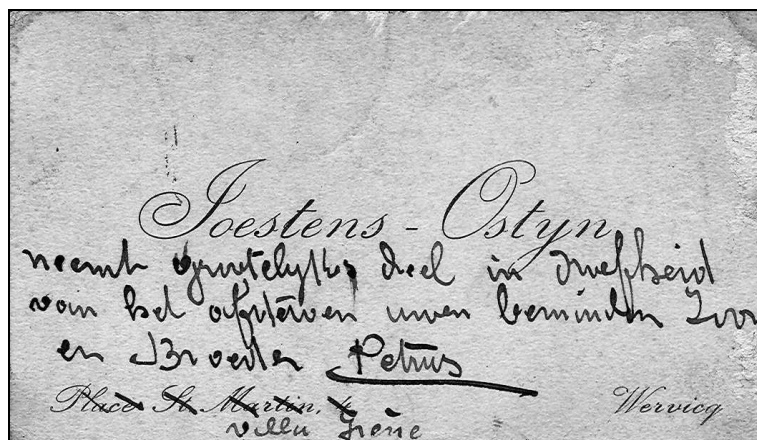 Joestens - Ostyn
neemt grootelyks deel in droefheid
van het afsterven uwen beminden Zoon
en Broeder Petrus
Place St Martin, 4 Wervicq
villa Irène